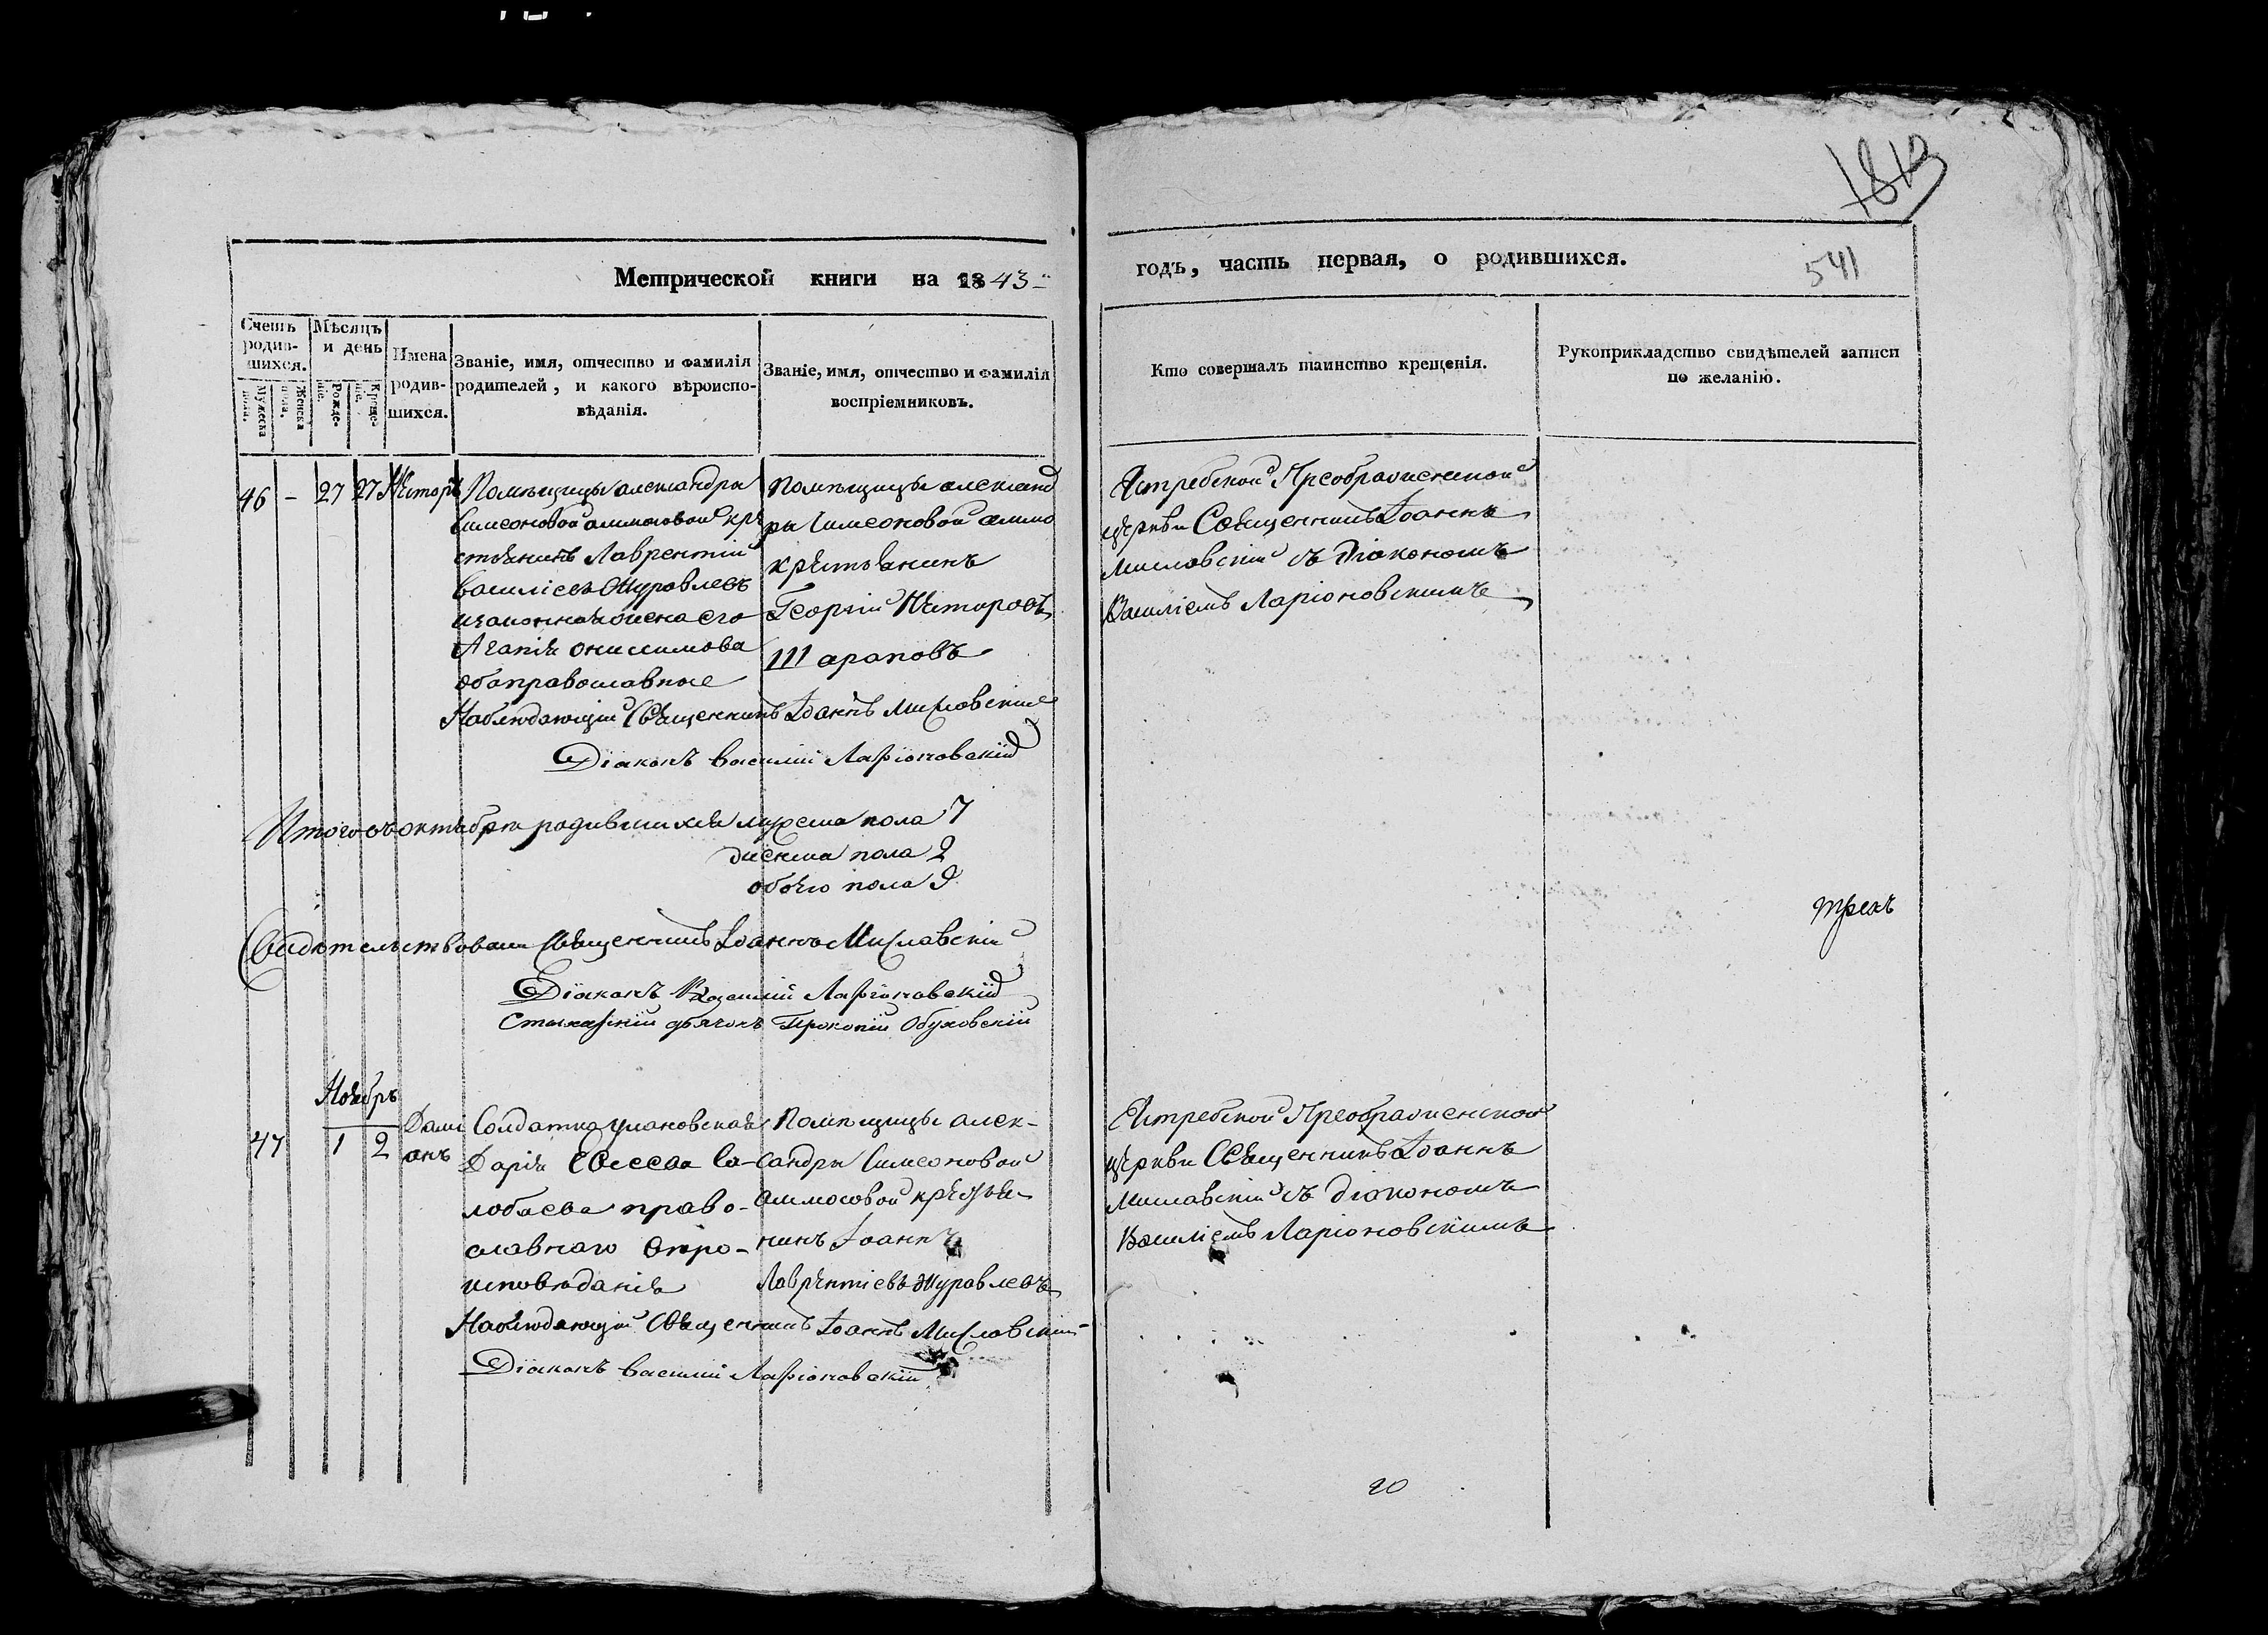 1813
541
Метрической книги на 1843
годъ, часть первая, о родившихся.
Счетъ родив-шихся.
Мужеска пола.
Женска пола.
Мѣсяцъ и день
Рожде-ніе.
Креще-ніе.
Имена родив-шихся.
Званіе, имя, отчество и фамилія родителей, и какого вѣроиспо-вѣданія.
Званіе, имя, отчество и фамилія воспріемниковъ.
Кто совершалъ таинство крещенія.
Рукоприкладство свидѣтелей записи по желанію.
46 - 27 27 Несторъ
Помѣщицы александры
Симеоновой алимосовой кре
стянинъ Лаврентій
Василіевъ Журавлевъ
изаконная жена его
Агапія онисимова
оба православные
помѣщицы александ
ры Симеоновой алимо
крестьянинъ
Георгій Несторовъ
Шараповъ
Ястребской Преображенской
церкви Священникъ Іоаннъ
Мисловскій съ діакономъ
Василіемъ Ларіоновскимъ
Наблюдающій Священникъ Іоаннъ Мисловскій
Діаконъ Василій Ларіоновскій
Итого въ октябрѣ родившихся мужеска пола 7
женска пола 2
обоего пола 9
трехъ
Свидѣтельствовали Священникъ Іоаннъ Мисловскій
Діаконъ Василій Ларіоновскій
Стихарный дьячокъ Прокопій Обуховскій
Ноябрь
47 1 2 Дамі
анъ
Солдатка улановская
Дарія Евсеева Со-
лобаева право-
славнаго вѣро-
исповѣданія
Помѣщицы алек-
сандры Симеоновой
алимосовой крестья-
нинъ Іоаннъ
Лаврентіевъ Журавлевъ
Ястребской Преображенской
церкви Священникъ Іоаннъ
Мисловскій съ діакономъ
Василіемъ Ларіоновскимъ
Наблюдающій Священникъ Іоаннъ Мисловскій
Діаконъ Василій Ларіоновскій
20